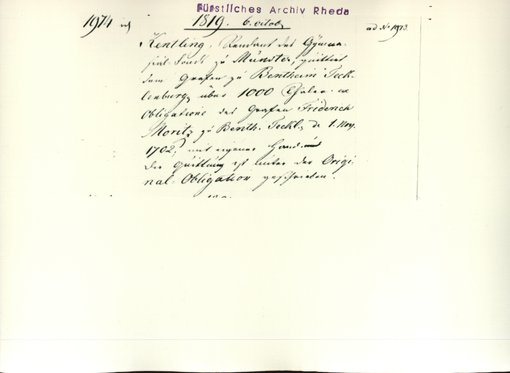 Fürstliches Archiv Rheda
1974 1819. 6. octob. ad No 1973.
Kentling, Rendant des Gymna-
sial-Fonds zu Münster, quittirt
dem Grafen zu Bentheim Teck-
lenburg über 1000 Thaler
Obligations des Grafen Friderich
Moritz zu Benth. Teckl. de 1. May
1702, mit eigener Hand
Die Quittung ist unter der Origi-
nal-Obligation geschrieben.